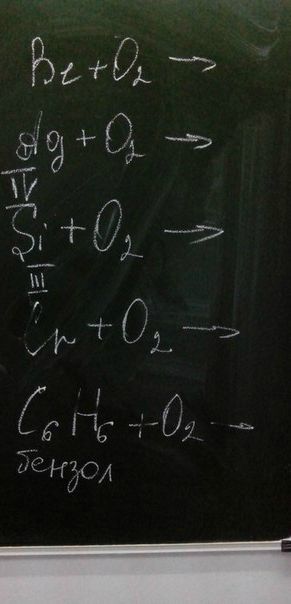 Be + O₂ →
Ag + O₂ →
IV
Si + O₂ →
III
Cr + O₂ →
C₆H₆ + O₂ →
бензол